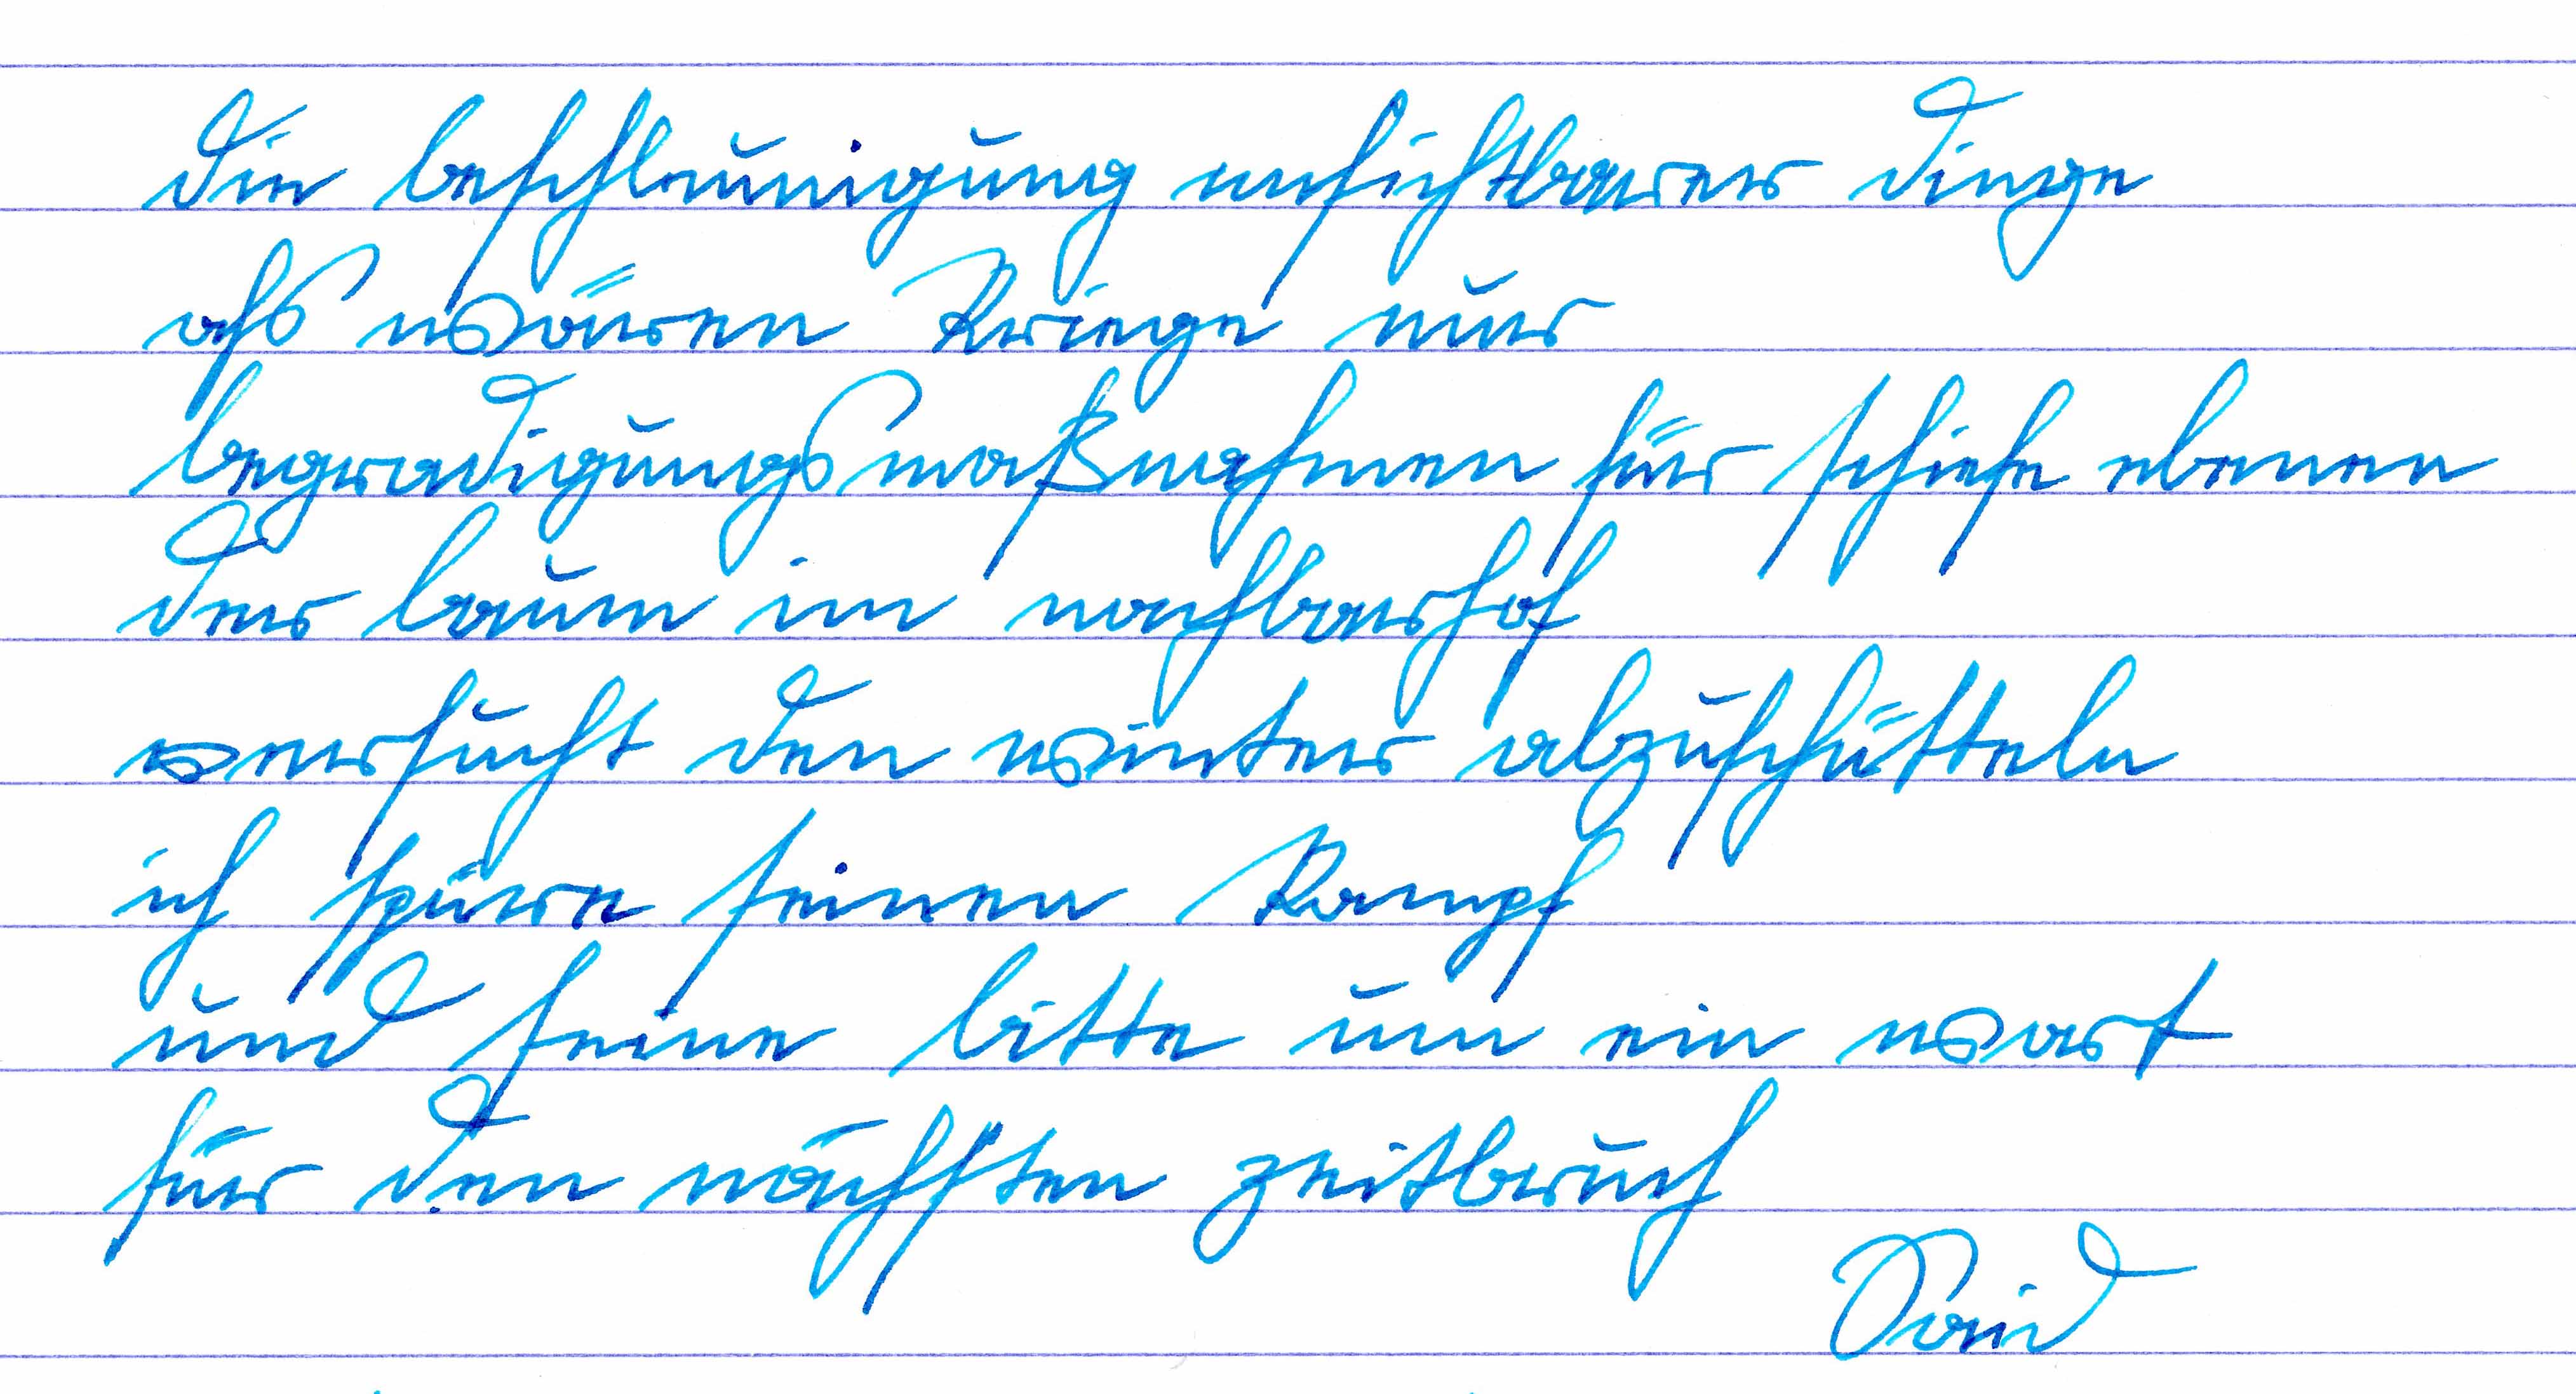 die beschleunigung unsichtbarer dinge
als wären kriege nur
begradigungsmaßnahmen für schiefe ebenen
der baum im nachbarhof
versucht den winter abzuschütteln
ich spüre seinen kampf
und seine bitte um ein wort
für den nächsten zeitbruch
Said